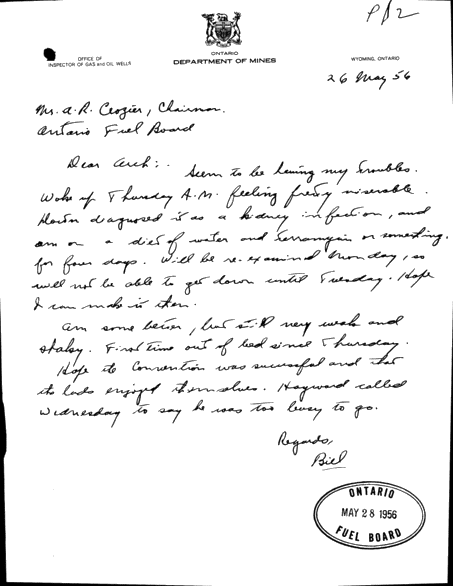 P/32
ONTARIO
DEPARTMENT OF MINES
OFFICE OF
INSPECTOR OF GAS and OIL WELLS
WYOMING, ONTARIO
26 May 56
Mr. A.R. Crozier, Chairman.
Ontario Fuel Board
Dear Arch:
Seem to be having my troubles.
Woke up Thursday A.M. feeling pretty miserable.
Doctor diagnosed it as a kidney infection, and
am on a diet of water and Terramycin or something
for four days. Will be re-examined Monday, so
will not be able to get down until Tuesday. Hope
I can make it then.
Am some better, but still very weak and
shaky. First time out of bed since Thursday.
Hope the Convention was successful and that
the lads enjoyed themselves. Hayward called
Wednesday to say he was too busy to go.
Regards,
Bill
ONTARIO
MAY 28 1956
FUEL BOARD